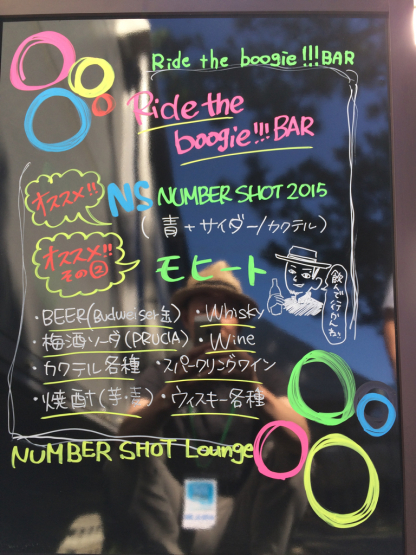 Ride the boogie!!!BAR
Ride the
boogie!!!BAR
オススメ!!
NS NUMBER SHOT 2015
(青+サイダー/カクテル)
オススメ!!
その②
モヒート
飲んで行かんね
・BEER(Budweiser缶) ・Whisky
・梅酒ソーダ(PRUCIA) ・Wine
・カクテル各種 ・スパークリングワイン
・焼酎(芋・麦) ・ウィスキー各種
NUMBER SHOT Lounge